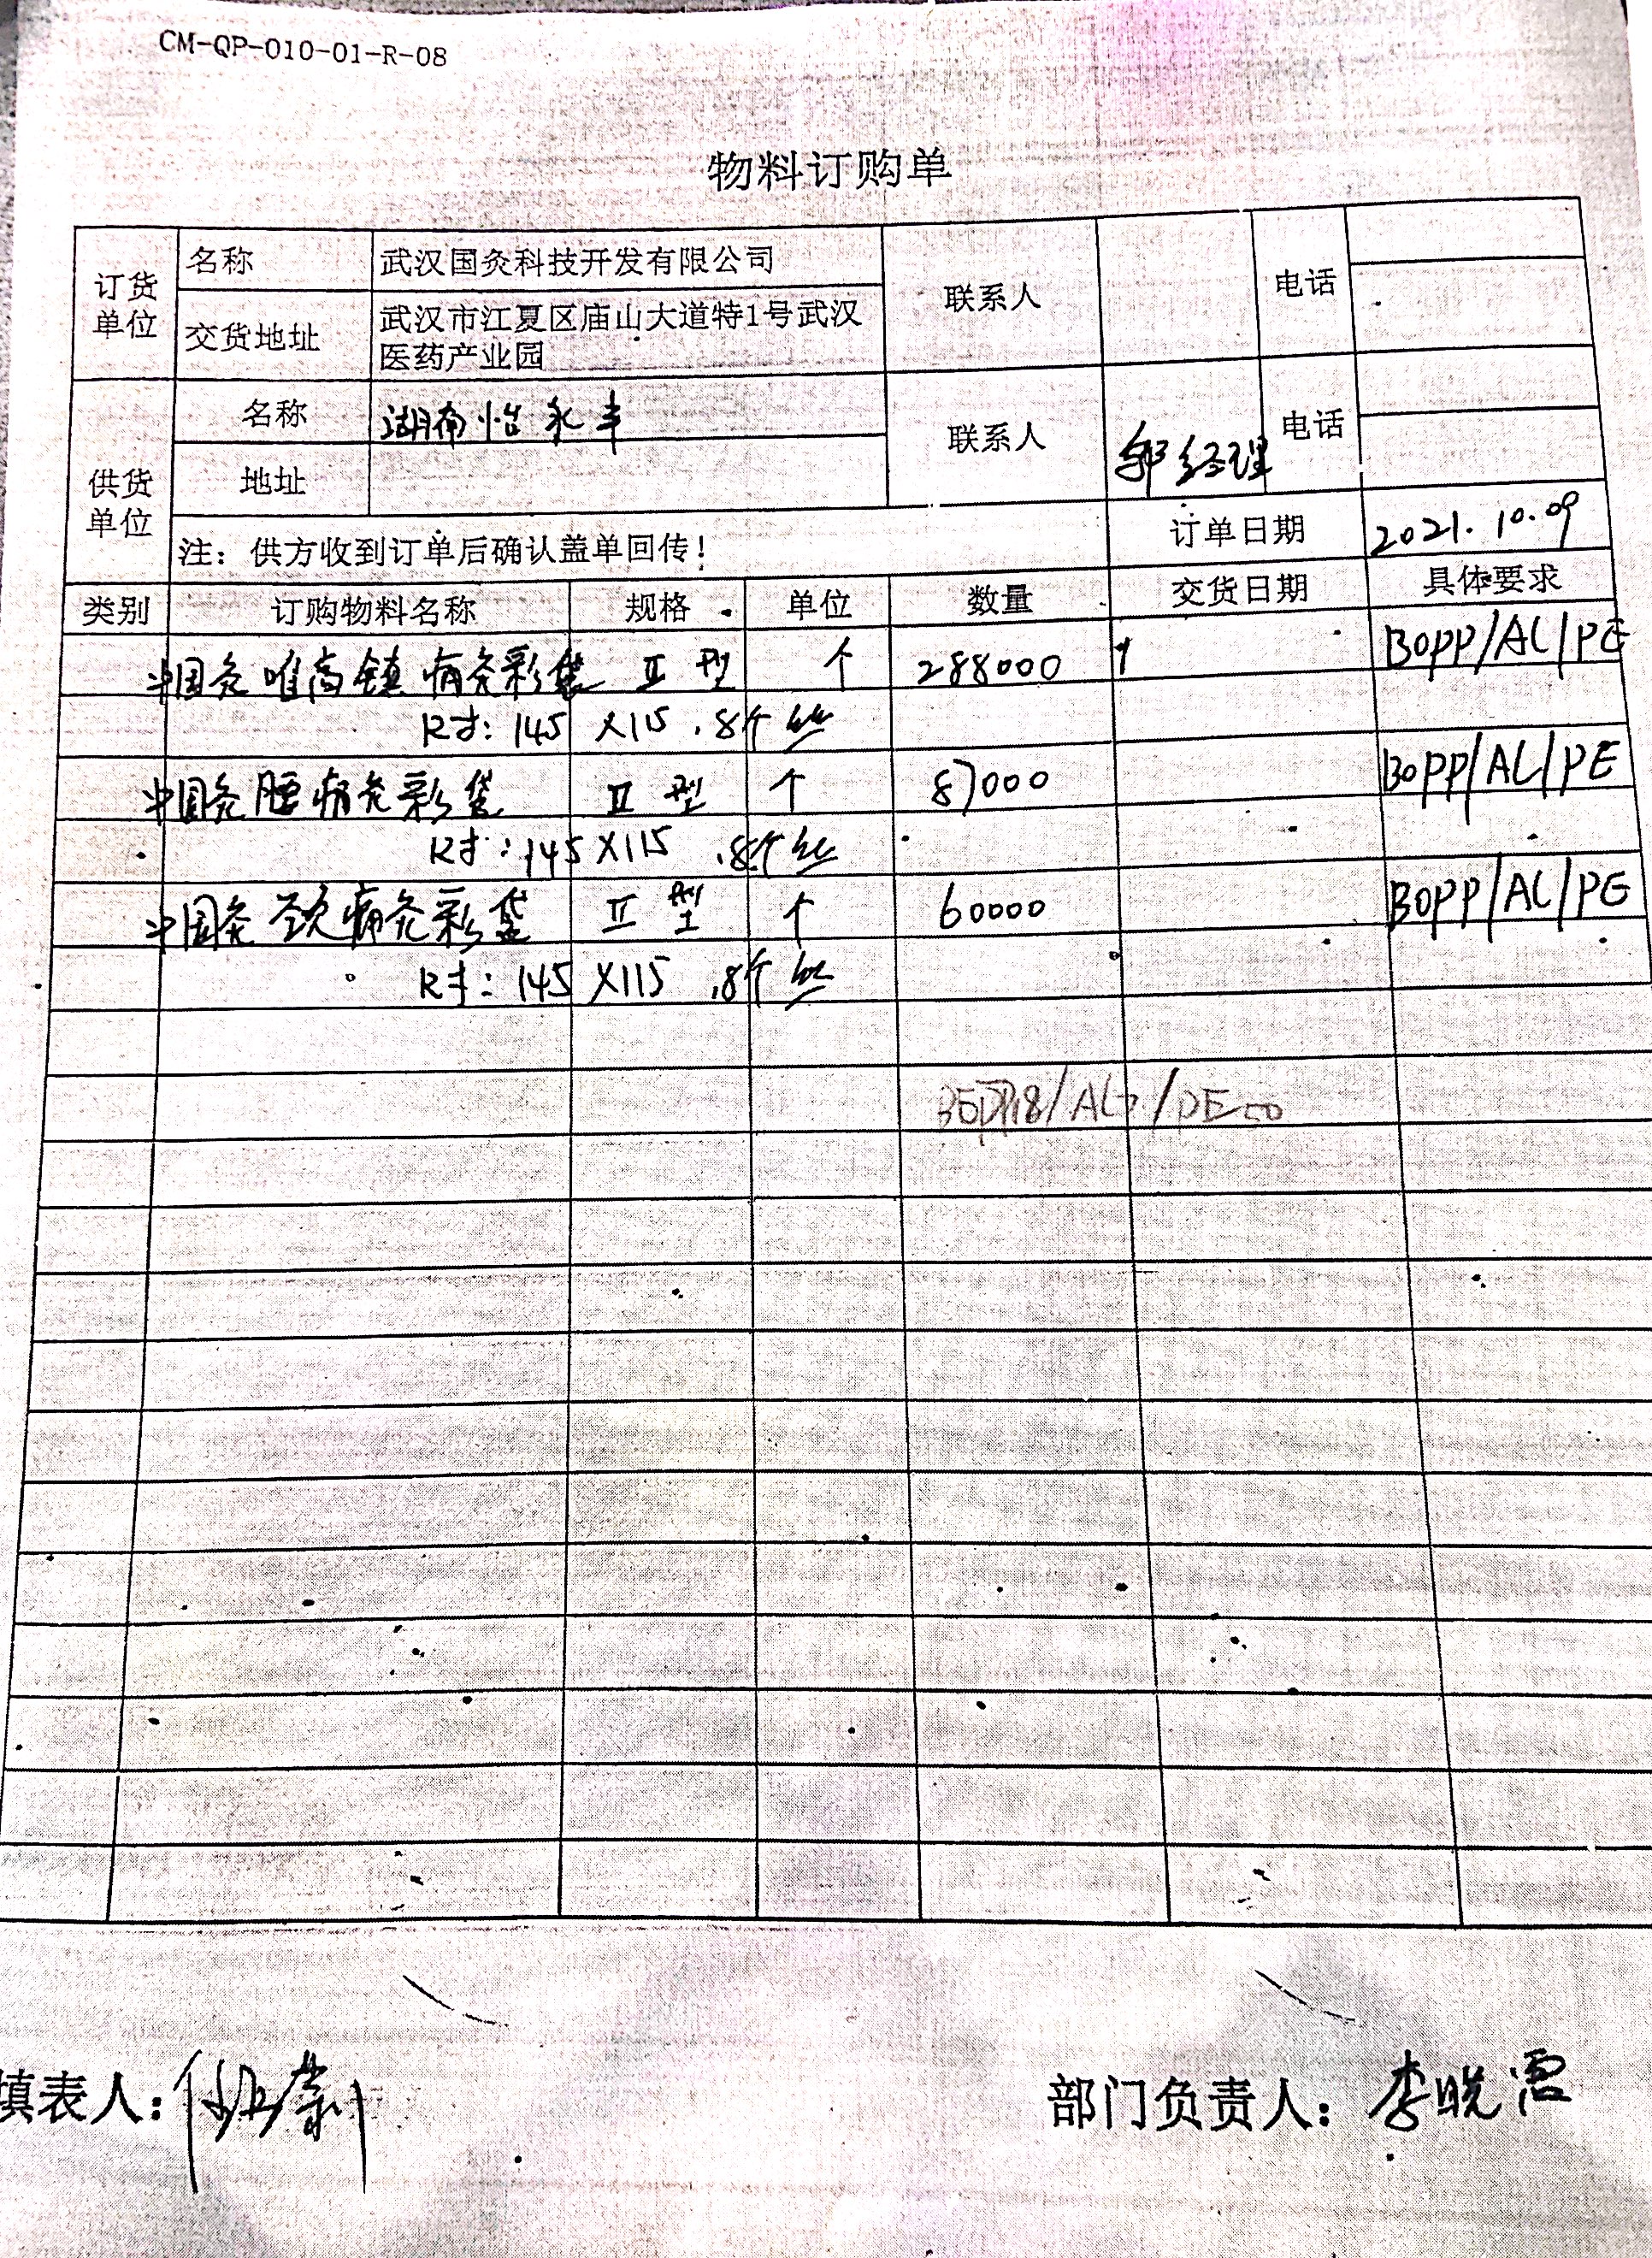 CM-QP-010-01-R-08
物料订购单
订货单位 名称 武汉国灸科技开发有限公司 联系人 电话
交货地址 武汉市江夏区庙山大道特1号武汉
医药产业园
供货单位 名称 湖南怡永丰 联系人 郭经理 电话
地址
注：供方收到订单后确认盖单回传！ 订单日期 2021.10.09
类别 订购物料名称 规格 单位 数量 交货日期 具体要求
中国灸唯高镇痛灸彩袋 II型 个 288000 BOPP/AL/PE
尺寸：145×115 .8个丝
中国灸腰痛灸彩袋 II型 个 87000 BOPP/AL/PE
尺寸：145×115 .8个丝
中国灸颈痛灸彩袋 II型 个 60000 BOPP/AL/PE
尺寸：145×115 .8个丝
BOPP18/AL7/PE50
填表人： 部门负责人：李晓霞